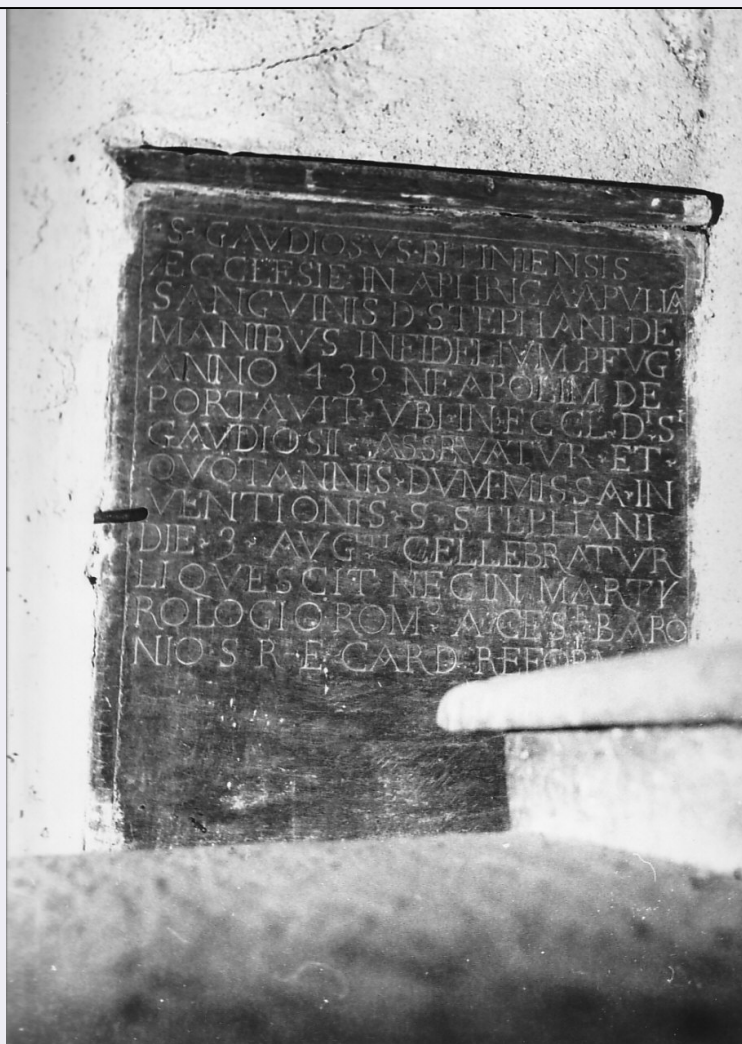 ·S· GAVDIOSVS·BITINIENSIS
ÆCCLESIE·IN APHRICA·APVLIÃ
SANGVINIS D· STEPHANI·DE
MANIBVS INFIDELIVM·PFVG⁹
ANNO 439 NEAPOLIM DE
PORTAVIT·VBI·IN·ECCL·D·S
GAVDIOSII·ASSPVATVR·ET·
QVOTANNIS·DVM·MISSA·IN
VENTIONIS·S· STEPHANI
DIE·3· AVG CELLEBRATVR
LIQVESCIT NEC IN MARTY
ROLOGIO ROM A CES BARO
NIO·S·R·E·CARD·